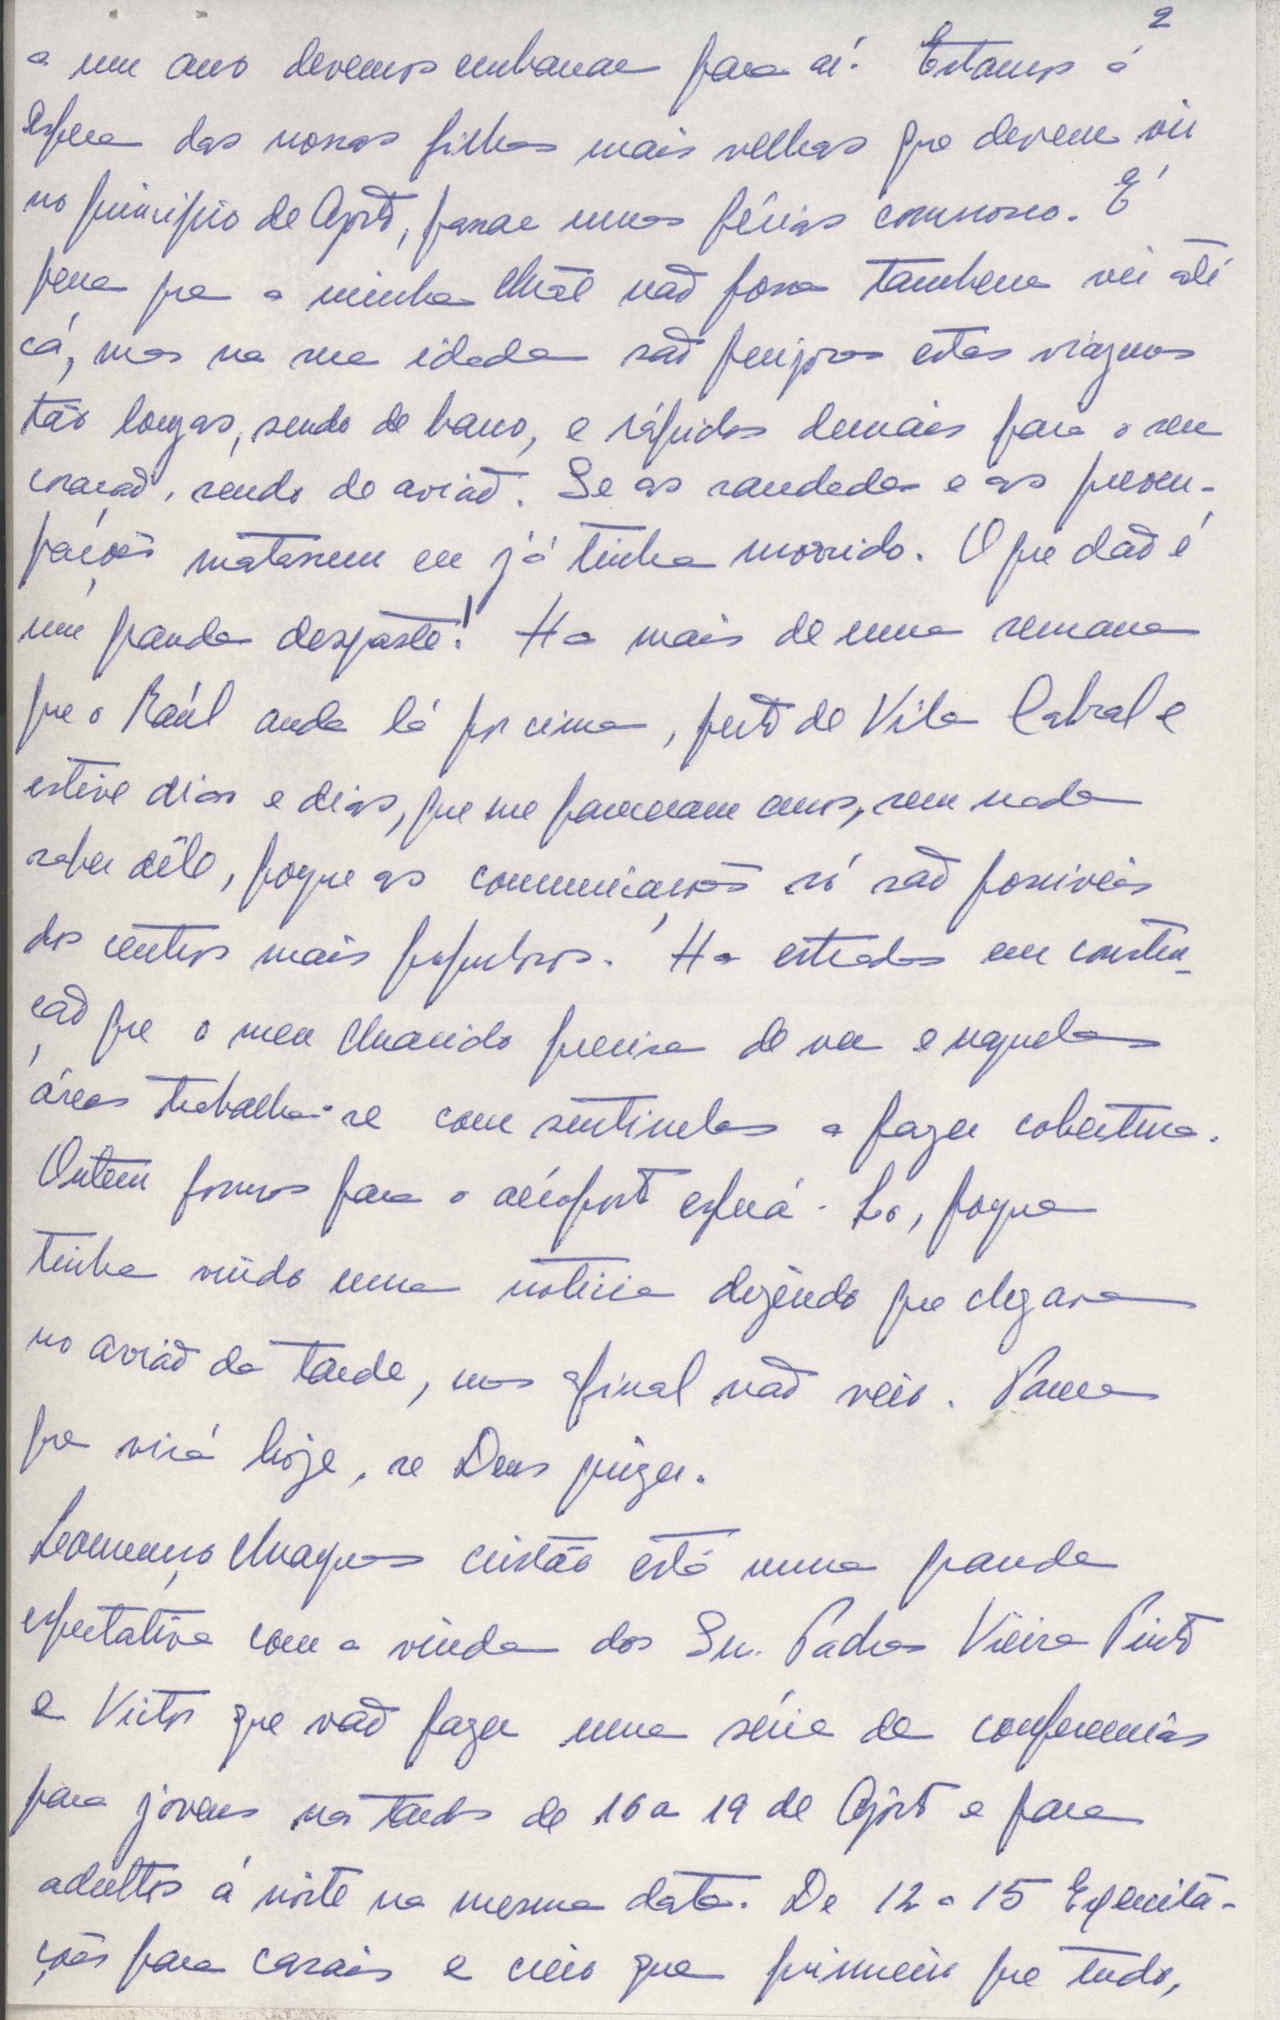 2
a um ano devemos embarcar para aí. Estamos á
espera das nossas filhas mais velhas que devem vir
no principio de Agosto, passar umas férias comnosco. É
pena que a minha Mãe não possa tambem vir até
cá, mas na sua idade são perigosas estas viagens
tão longas, sendo de barco, e rápidas demais para o seu
coração, sendo de avião. Se as saudades e as preocu-
pações matassem eu já tinha morrido. O que dão é
um grande desgaste! Ha mais de uma semana
que o Raúl anda lá por cima, perto de Vila Cabral e
estive dias e dias, que me pareceram anos, sem nada
saber dêle, porque as comunicações só são possiveis
dos centros mais populosos. Ha estradas em constru-
ção que o meu Marido precisa de ver e naquelas
áreas trabalha-se com sentinelas a fazer cobertura.
Ontem fomos para o aéroporto esperá-lo, porque
tinha vindo uma noticia dizendo que chegava
no avião da tarde, mas afinal não veio. Parece
que virá hoje, se Deus quizer.
Lourenço Marques cristão está numa grande
espectativa com a vinda dos Srs. Padres Vieira Pinto
e Victor que vão fazer uma série de conferencias
para jovens nas tardes de 16 a 19 de Agosto e para
adultos á noite na mesma data. De 12 a 15 Exercita-
ções para casais e creio que primeiro que tudo,